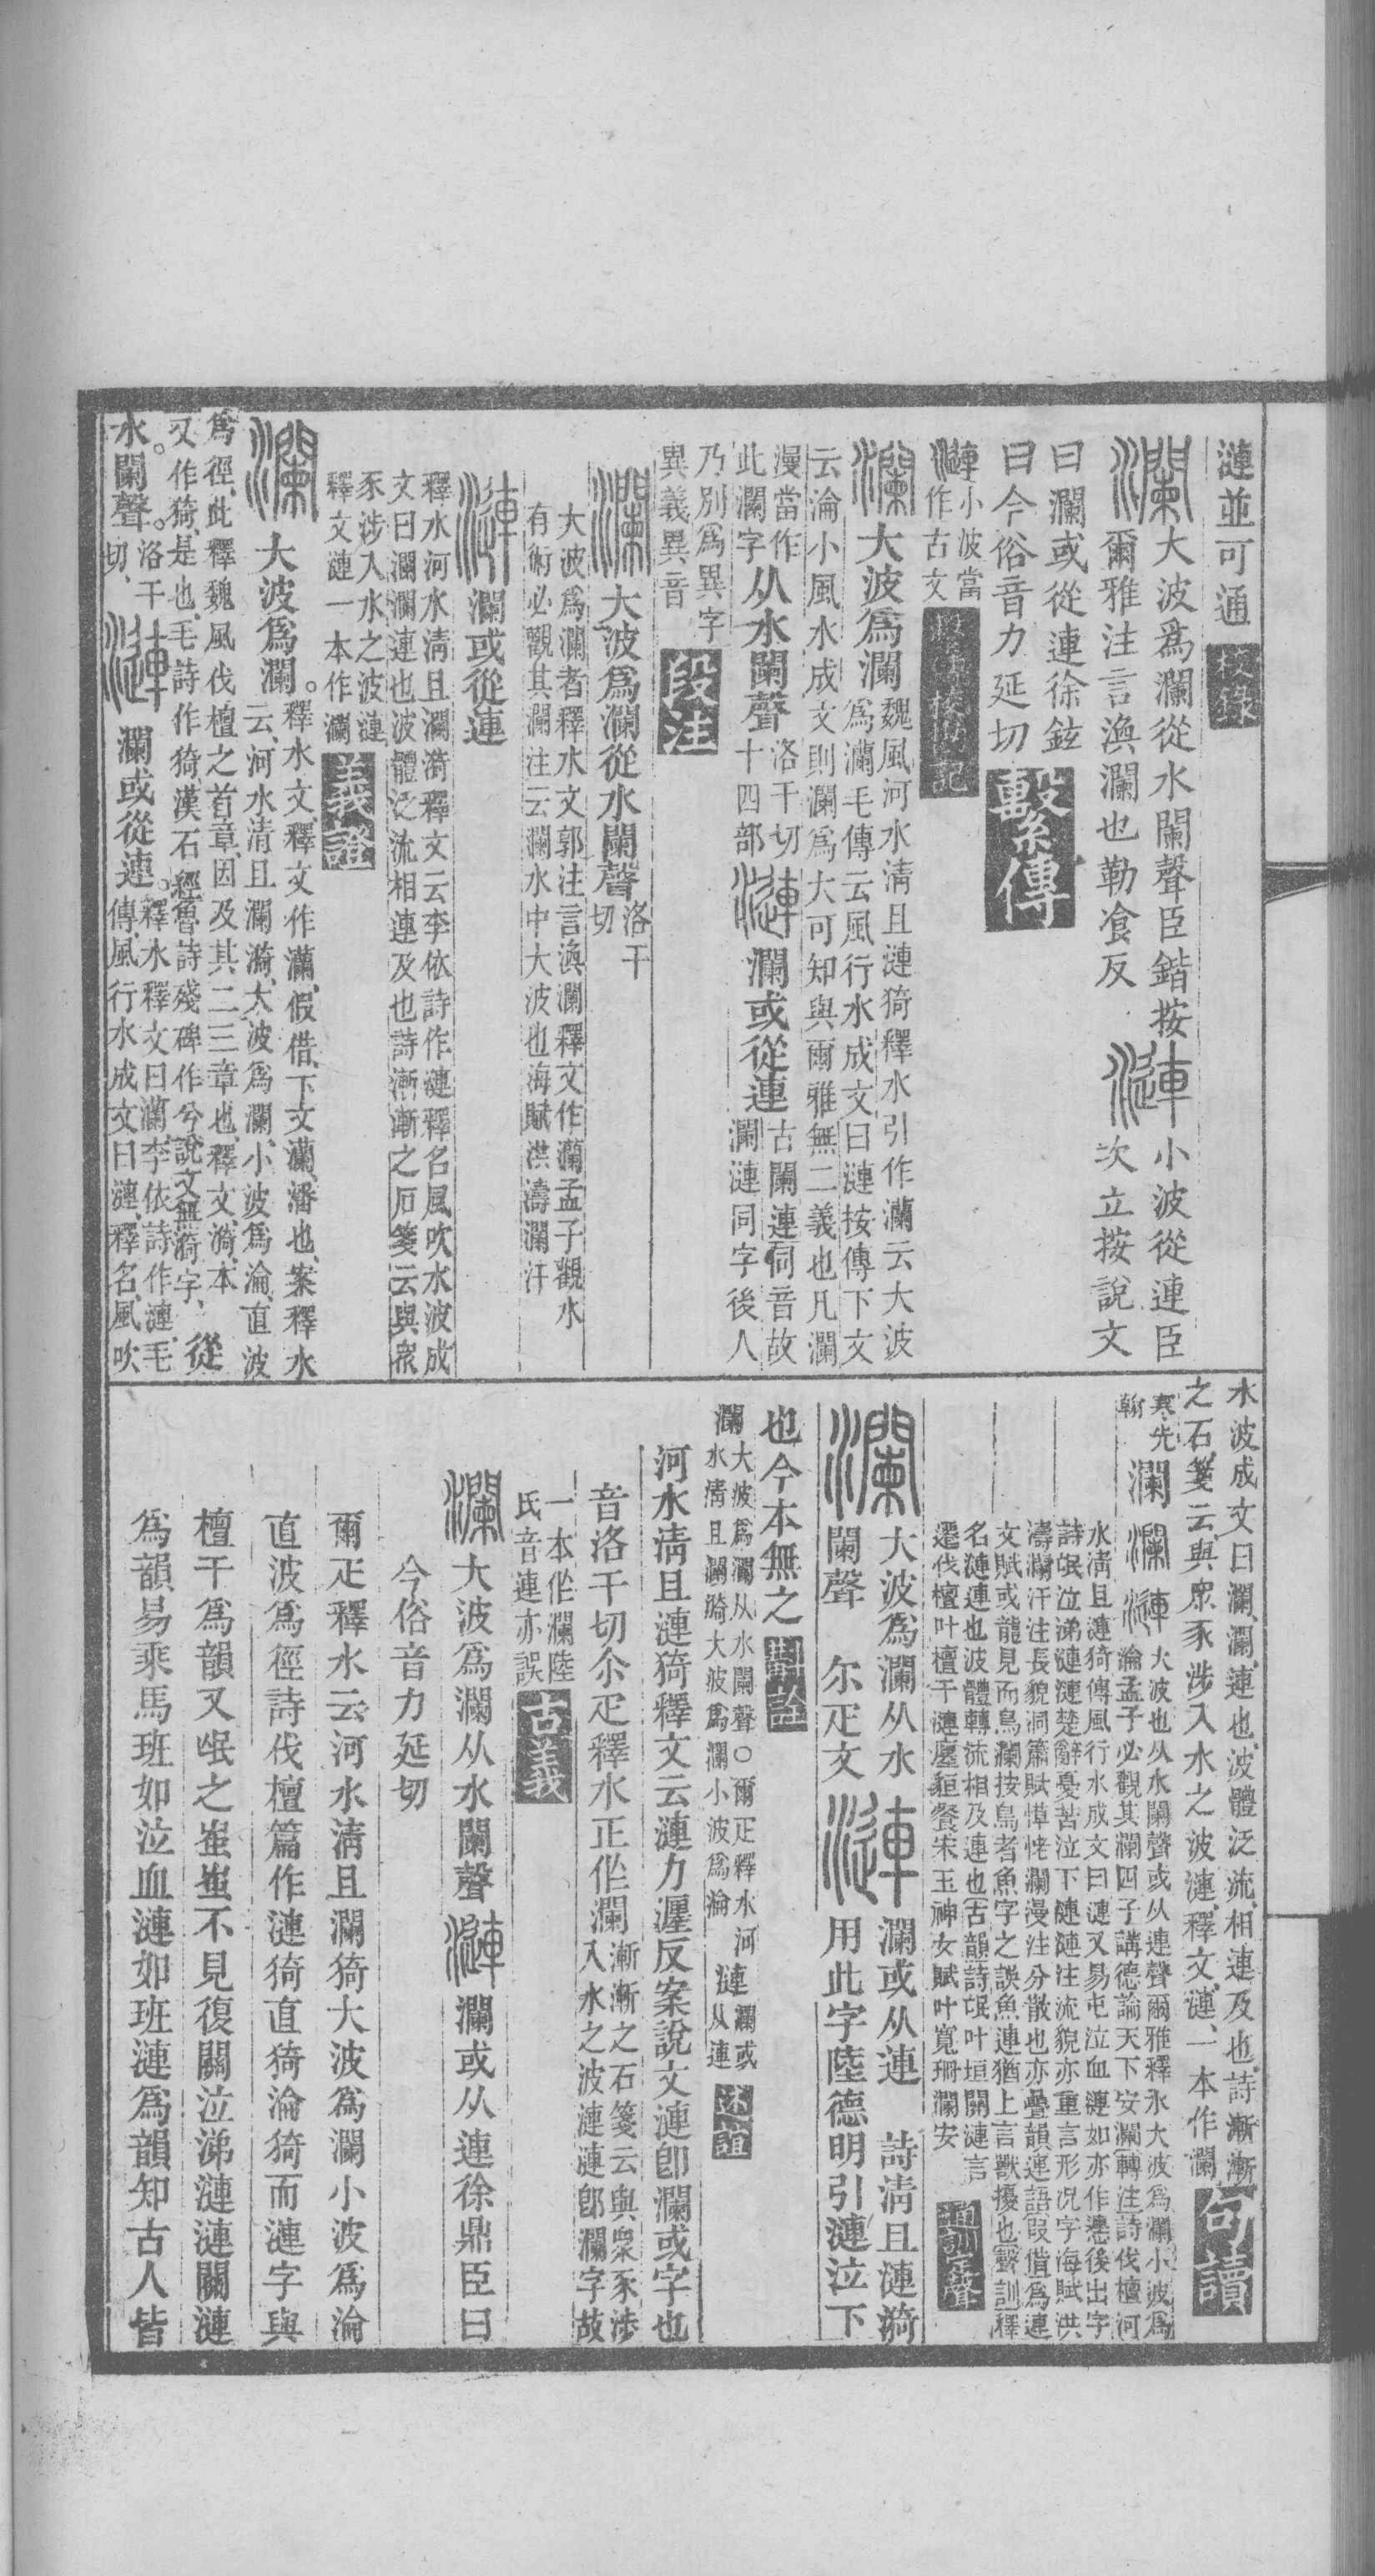 漣並可通 校錄
瀾 大波爲瀾從水闌聲臣鍇按
爾雅注言渙瀾也勒飡反 漣 小波從連臣
次立按說文
曰瀾或從連徐鉉
曰今俗音力延切 繫傳
漣 小波當
作古文
瀾 大波爲瀾 魏風河水清且漣猗釋水引作瀾云大波
爲瀾毛傳云風行水成文曰漣按傳下文
云淪小風水成文則瀾爲大可知與爾雅無二義也凡瀾
漫當作
此瀾字 从水闌聲 洛干切
十四部 漣 瀾或從連 古闌連同音故
瀾漣同字後人
乃別爲異字
異義異音 段注
瀾 大波爲瀾從水闌聲 洛干
切
大波爲瀾者釋水文郭注言渙瀾釋文作灡孟子觀水
有術必觀其瀾注云瀾水中大波也海賦洪濤瀾汗
漣 瀾或從連
釋水河水清且瀾漪釋文云李依詩作漣釋名風吹水波成
文曰瀾瀾連也波體泛流相連及也詩漸漸之石箋云與衆
豕涉入水之波漣
釋文漣一本作瀾 義證
瀾 大波爲瀾。釋水文、釋文作灡、假借、下文灡、潘也、案釋水
云、河水清且瀾漪、大波爲瀾、小波爲淪、直波
爲徑、此釋魏風伐檀之首章、因及其二三章也、釋文、漪、本
又作猗、是也、毛詩作猗、漢石經魯詩殘碑作兮、說文無漪字、 從
水。闌聲。洛干
切、 漣 瀾或從連。釋水釋文曰灡、李依詩作漣、毛
傳、風行水成文曰漣、釋名、風吹
水波成文曰瀾、瀾、連也、波體泛流、相連及也、詩漸漸
之石、箋云、與衆豕涉入水之波漣、釋文、漣、一本作瀾、 句讀
寒先
翰 瀾 瀾 漣 大波也从水闌聲或从連聲爾雅釋水大波爲瀾小波爲
淪孟子必觀其瀾四子講德論天下安瀾轉注詩伐檀河
水清且漣猗傳風行水成文曰漣又易屯泣血漣如亦作㦁後出字
詩氓泣涕漣漣楚辭憂苦泣下漣漣注流貌亦重言形況字海賦洪
濤瀾汗注長貌洞簫賦愺恅瀾漫注分散也亦疊韻連語叚借爲連
文賦或龍見而鳥瀾按鳥者魚字之誤魚連猶上言獸擾也聲訓釋
名漣連也波體轉流相及連也古韻詩氓叶垣關漣言
遷伐檀叶檀干漣廛貆餐宋玉神女賦叶寬珊瀾安 通訓定聲
瀾 大波爲瀾从水
闌聲 尔疋文 漣 瀾或从連 詩淸且漣漪
用此字陸德明引漣泣下
也今本無之 斠詮
瀾 大波爲瀾从水闌聲○爾疋釋水河
水清且瀾漪大波爲瀾小波爲淪 漣 瀾或
从連 述誼
河水淸且漣猗釋文云漣力㢆反案說文漣卽瀾或字也
音洛干切尒疋釋水正作瀾 漸漸之石箋云與衆豕涉
入水之波漣漣卽瀾字故
一本作瀾陸
氏音連亦誤 古義
瀾 大波爲瀾从水闌聲 漣 瀾或从連徐鼎臣曰
今俗音力延切
爾疋釋水云河水淸且瀾猗大波爲瀾小波爲淪
直波爲徑詩伐檀篇作漣猗直猗淪猗而漣字與
檀干爲韻又氓之蚩蚩不見復關泣涕漣漣關漣
爲韻易乘馬班如泣血漣如班漣爲韻知古人皆